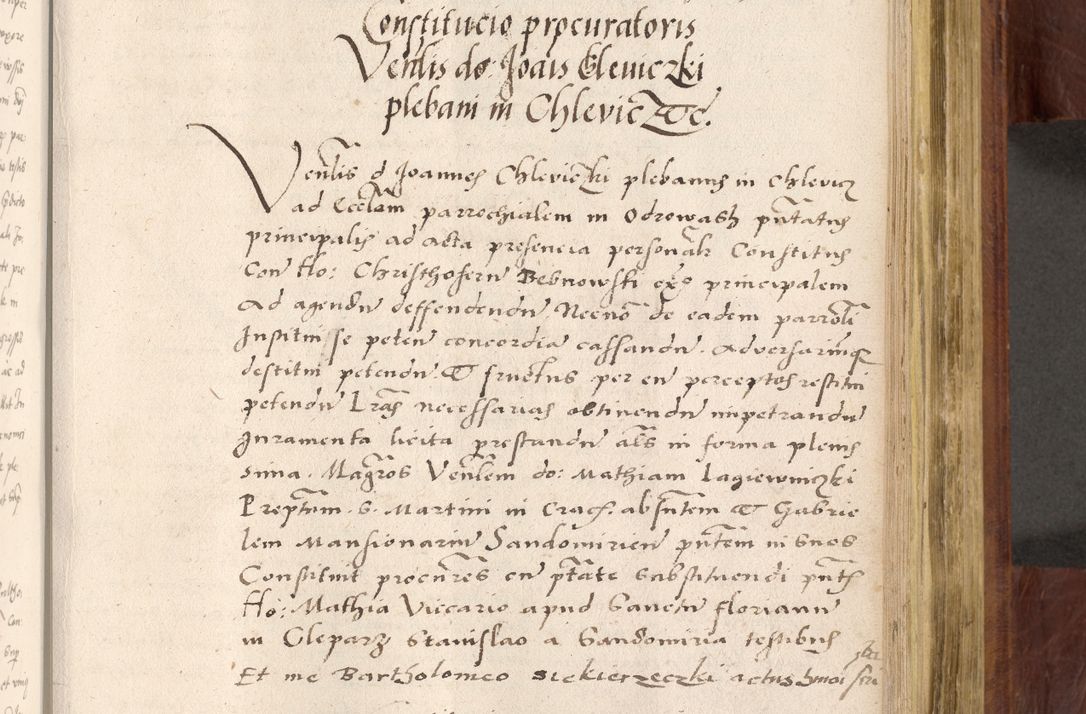 Constitucio procuratoris
Venlis do: Joais Chlewiczki
plebani in Chlevicz &c.
Venlis d Joannes Chleviczki plebanus in Chlevicz
ad Ecclam parrochialem in Odrowasz pntatus
principalis ad acta presencia personalr Constitus
Con Ho: Christhoferu Bebnowski exc principalem
Ad agendu deffendendu Necno de eadem parrochi
Institui se peten concordia cassandu Adversariumq
destitui petendu & fructus per eu perceptos restitui
petendu Lras necessarias obtinendu impetrandu
Juramenta licita prestandu als in forma plenis
sima. Magros Venlem do: Mathiam Lagiewniczki
Preptum S. Martini in Crac. absntem & Gabrie
lem Mansionariu Sandomirien pntem in suos
Constituit procures cu ptate substituendi pntib
Ho: Mathia Viccario apud Sanctu Florianu
in Cleparz Stanislao a Sandomiria testibus
Et me Bartholomeo Siekierzeczki actus hmoi scri